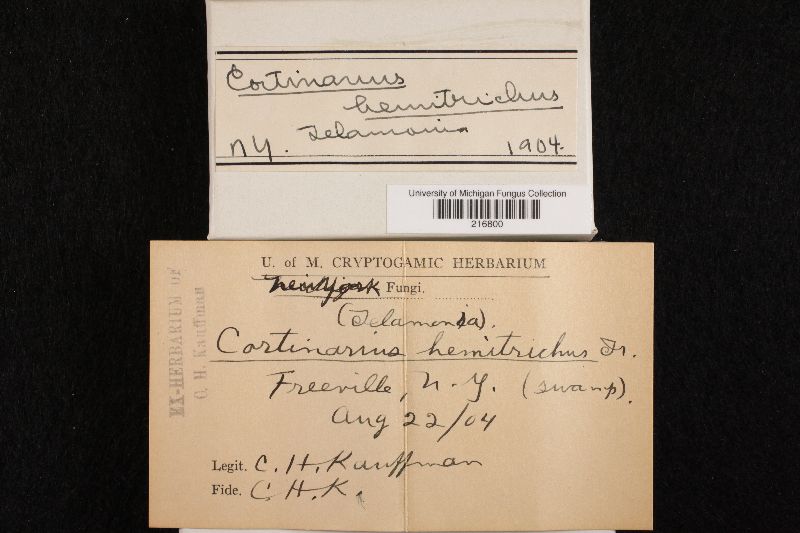 Cortinarius
hemitrichus
Telamonia
NY. 1904.
University of Michigan Fungus Collection
216800
U. of M. CRYPTOGAMIC HERBARIUM
New York Fungi.
(Telamonia).
Cortinarius hemitrichus Fr.
Freeville, N.Y. (swamp).
Aug 22/04
Legit. C. H. Kauffman
Fide. C. H. K.
EX-HERBARIUM OF
C. H. Kauffman